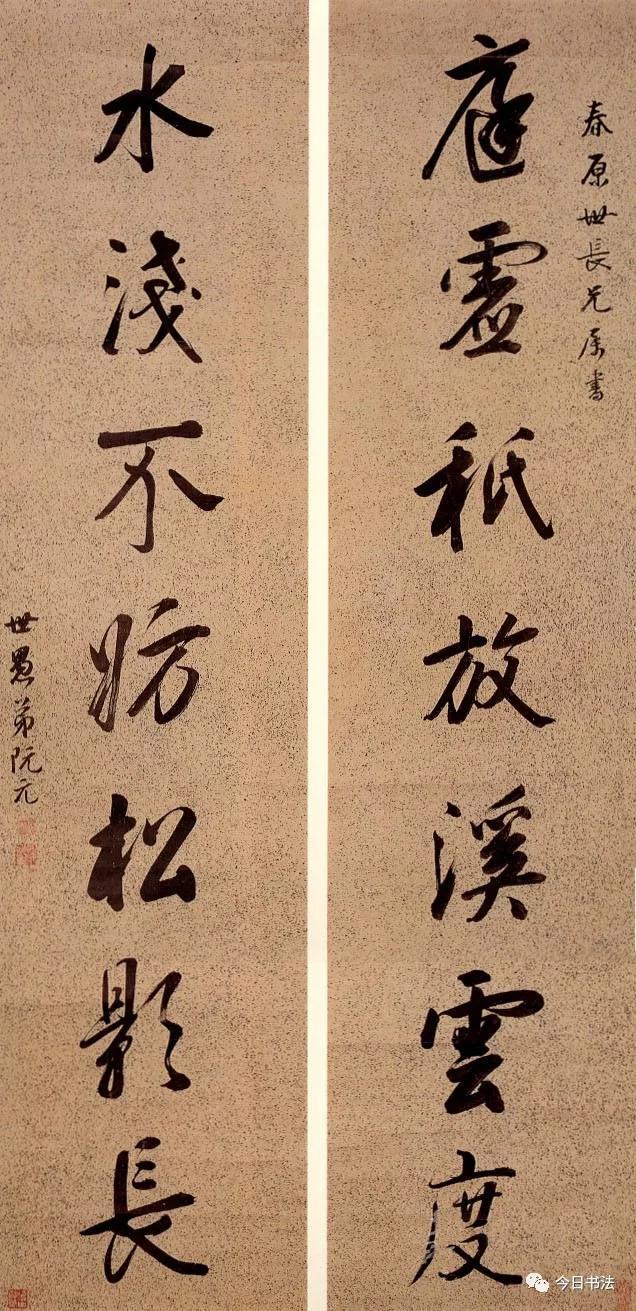 春原世長兄属書
庭虛秪放溪雲度
水淺不妨松影長
世愚弟阮元
今日书法